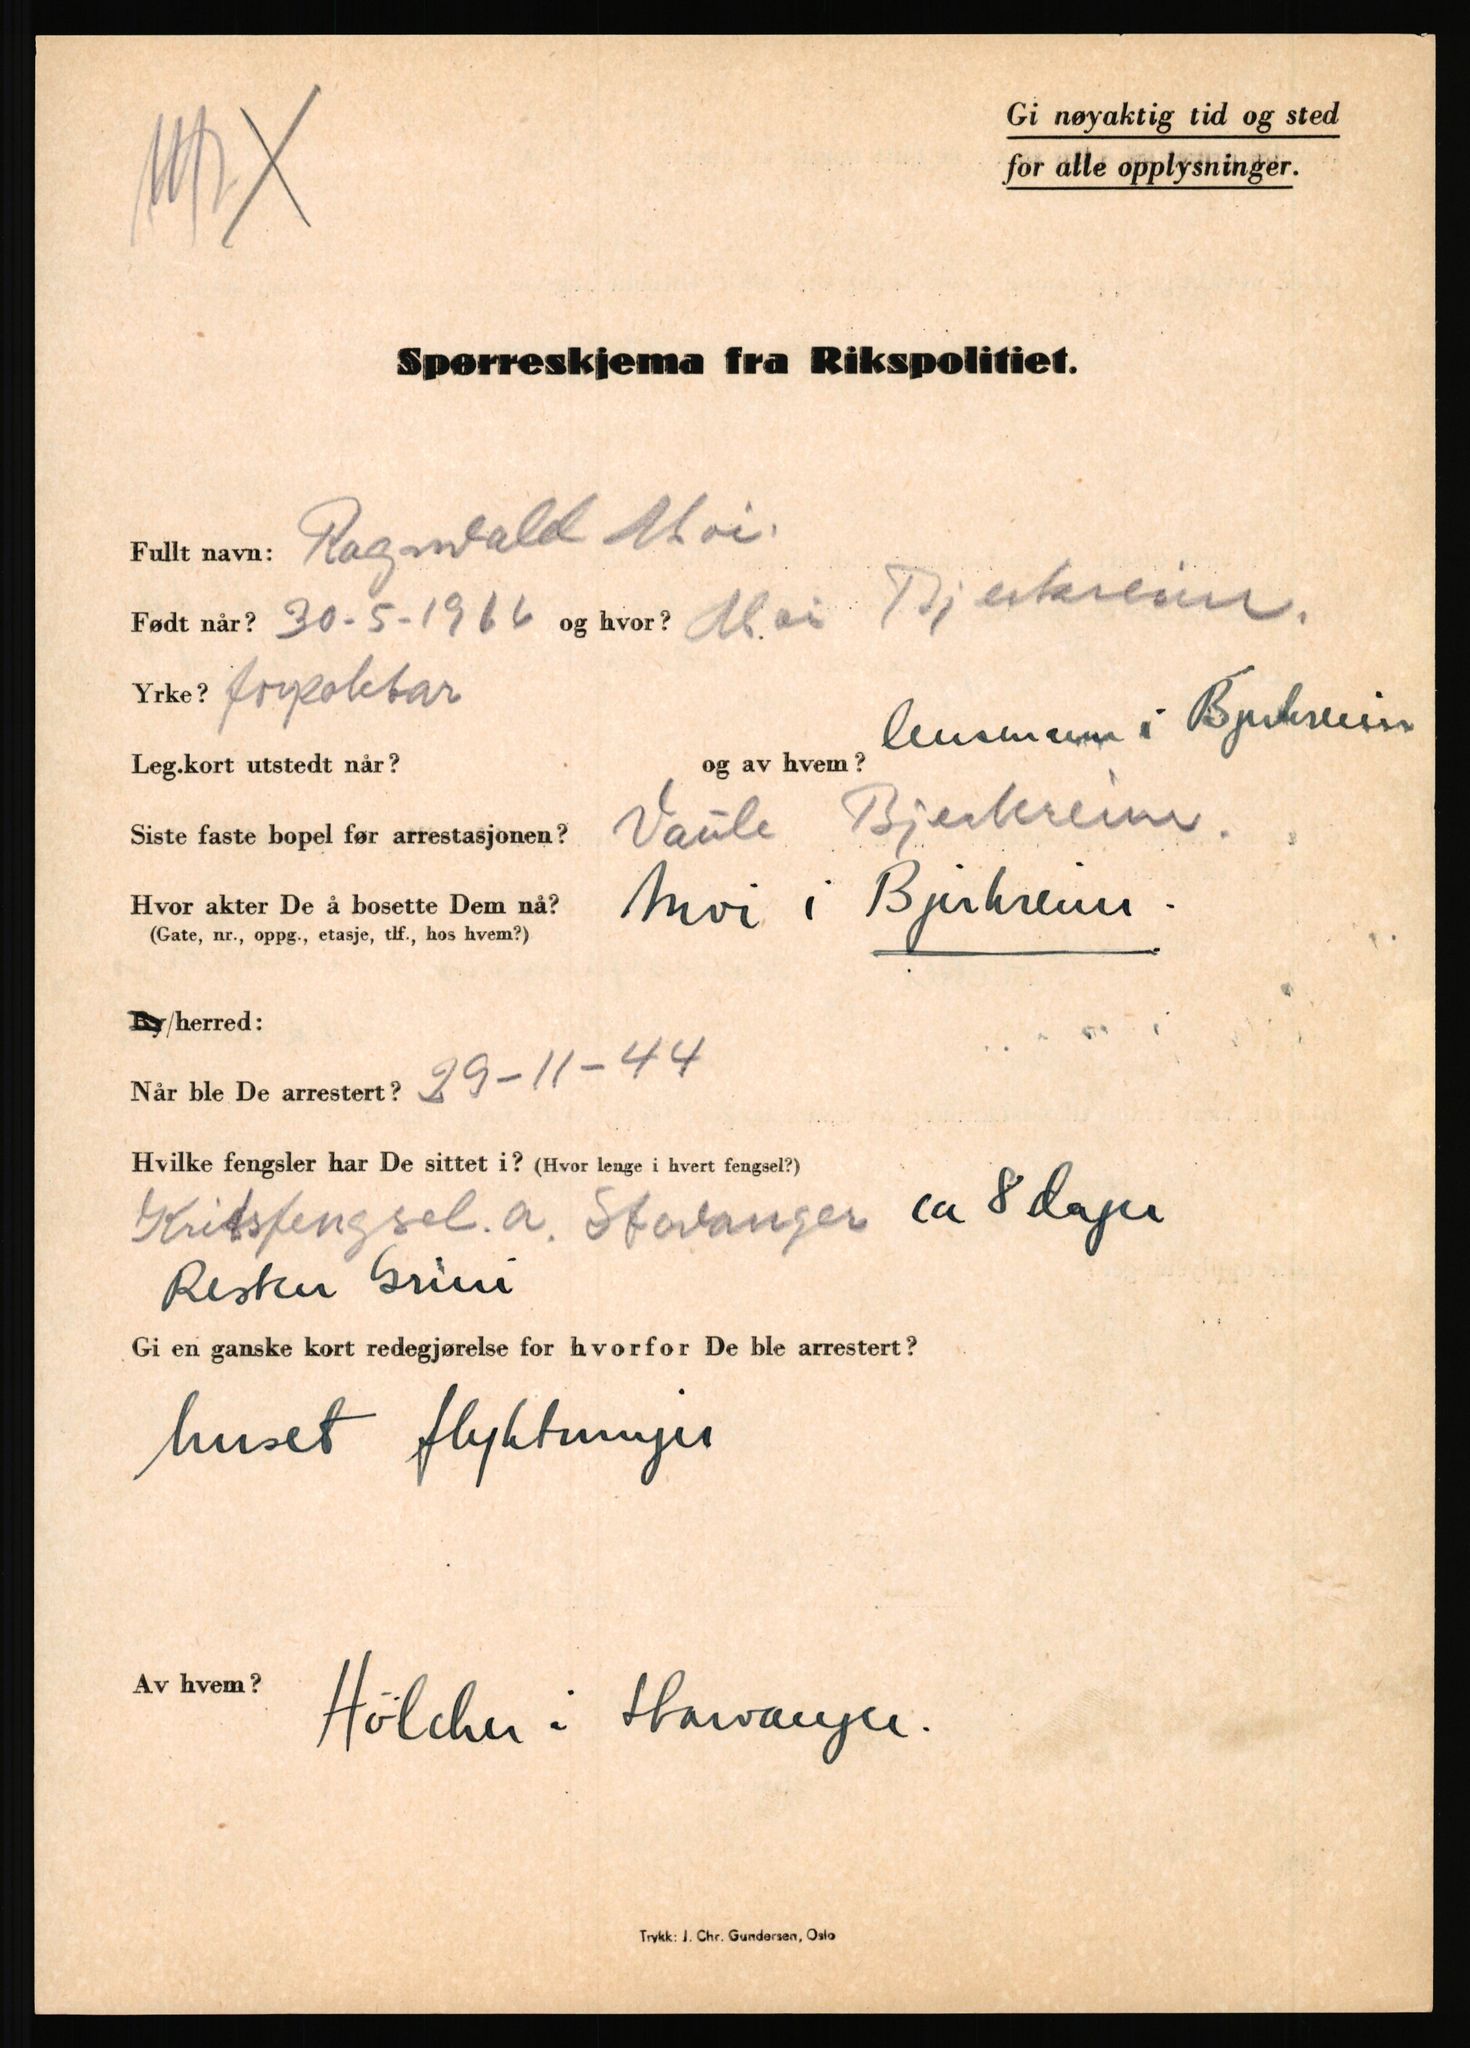 Gi nøyaktig tid og sted
for alle opplysninger.
Spørreskjema fra Rikspolitiet.
Fullt navn: Ragnvald Moi.
Født når? 30-5-1916 og hvor? Moi Bjerkreim.
Yrke? forpaktar
Leg.kort utstedt når? og av hvem? lensmann i Bjerkreim
Siste faste bopel før arrestasjonen? Vaule Bjerkreim.
Hvor akter De å bosette Dem nå? Moi i Bjerkreim.
(Gate, nr., oppg., etasje, tlf., hos hvem?)
By/herred:
Når ble De arrestert? 29-11-44
Hvilke fengsler har De sittet i? (Hvor lenge i hvert fengsel?)
Kritsfengsel. a. Stavanger ca 8 dager
Resten Grini
Gi en ganske kort redegjørelse for hvorfor De ble arrestert?
huset flyktninger
Av hvem? Hölcher i Stavanger.
Trykk: J. Chr. Gundersen, Oslo